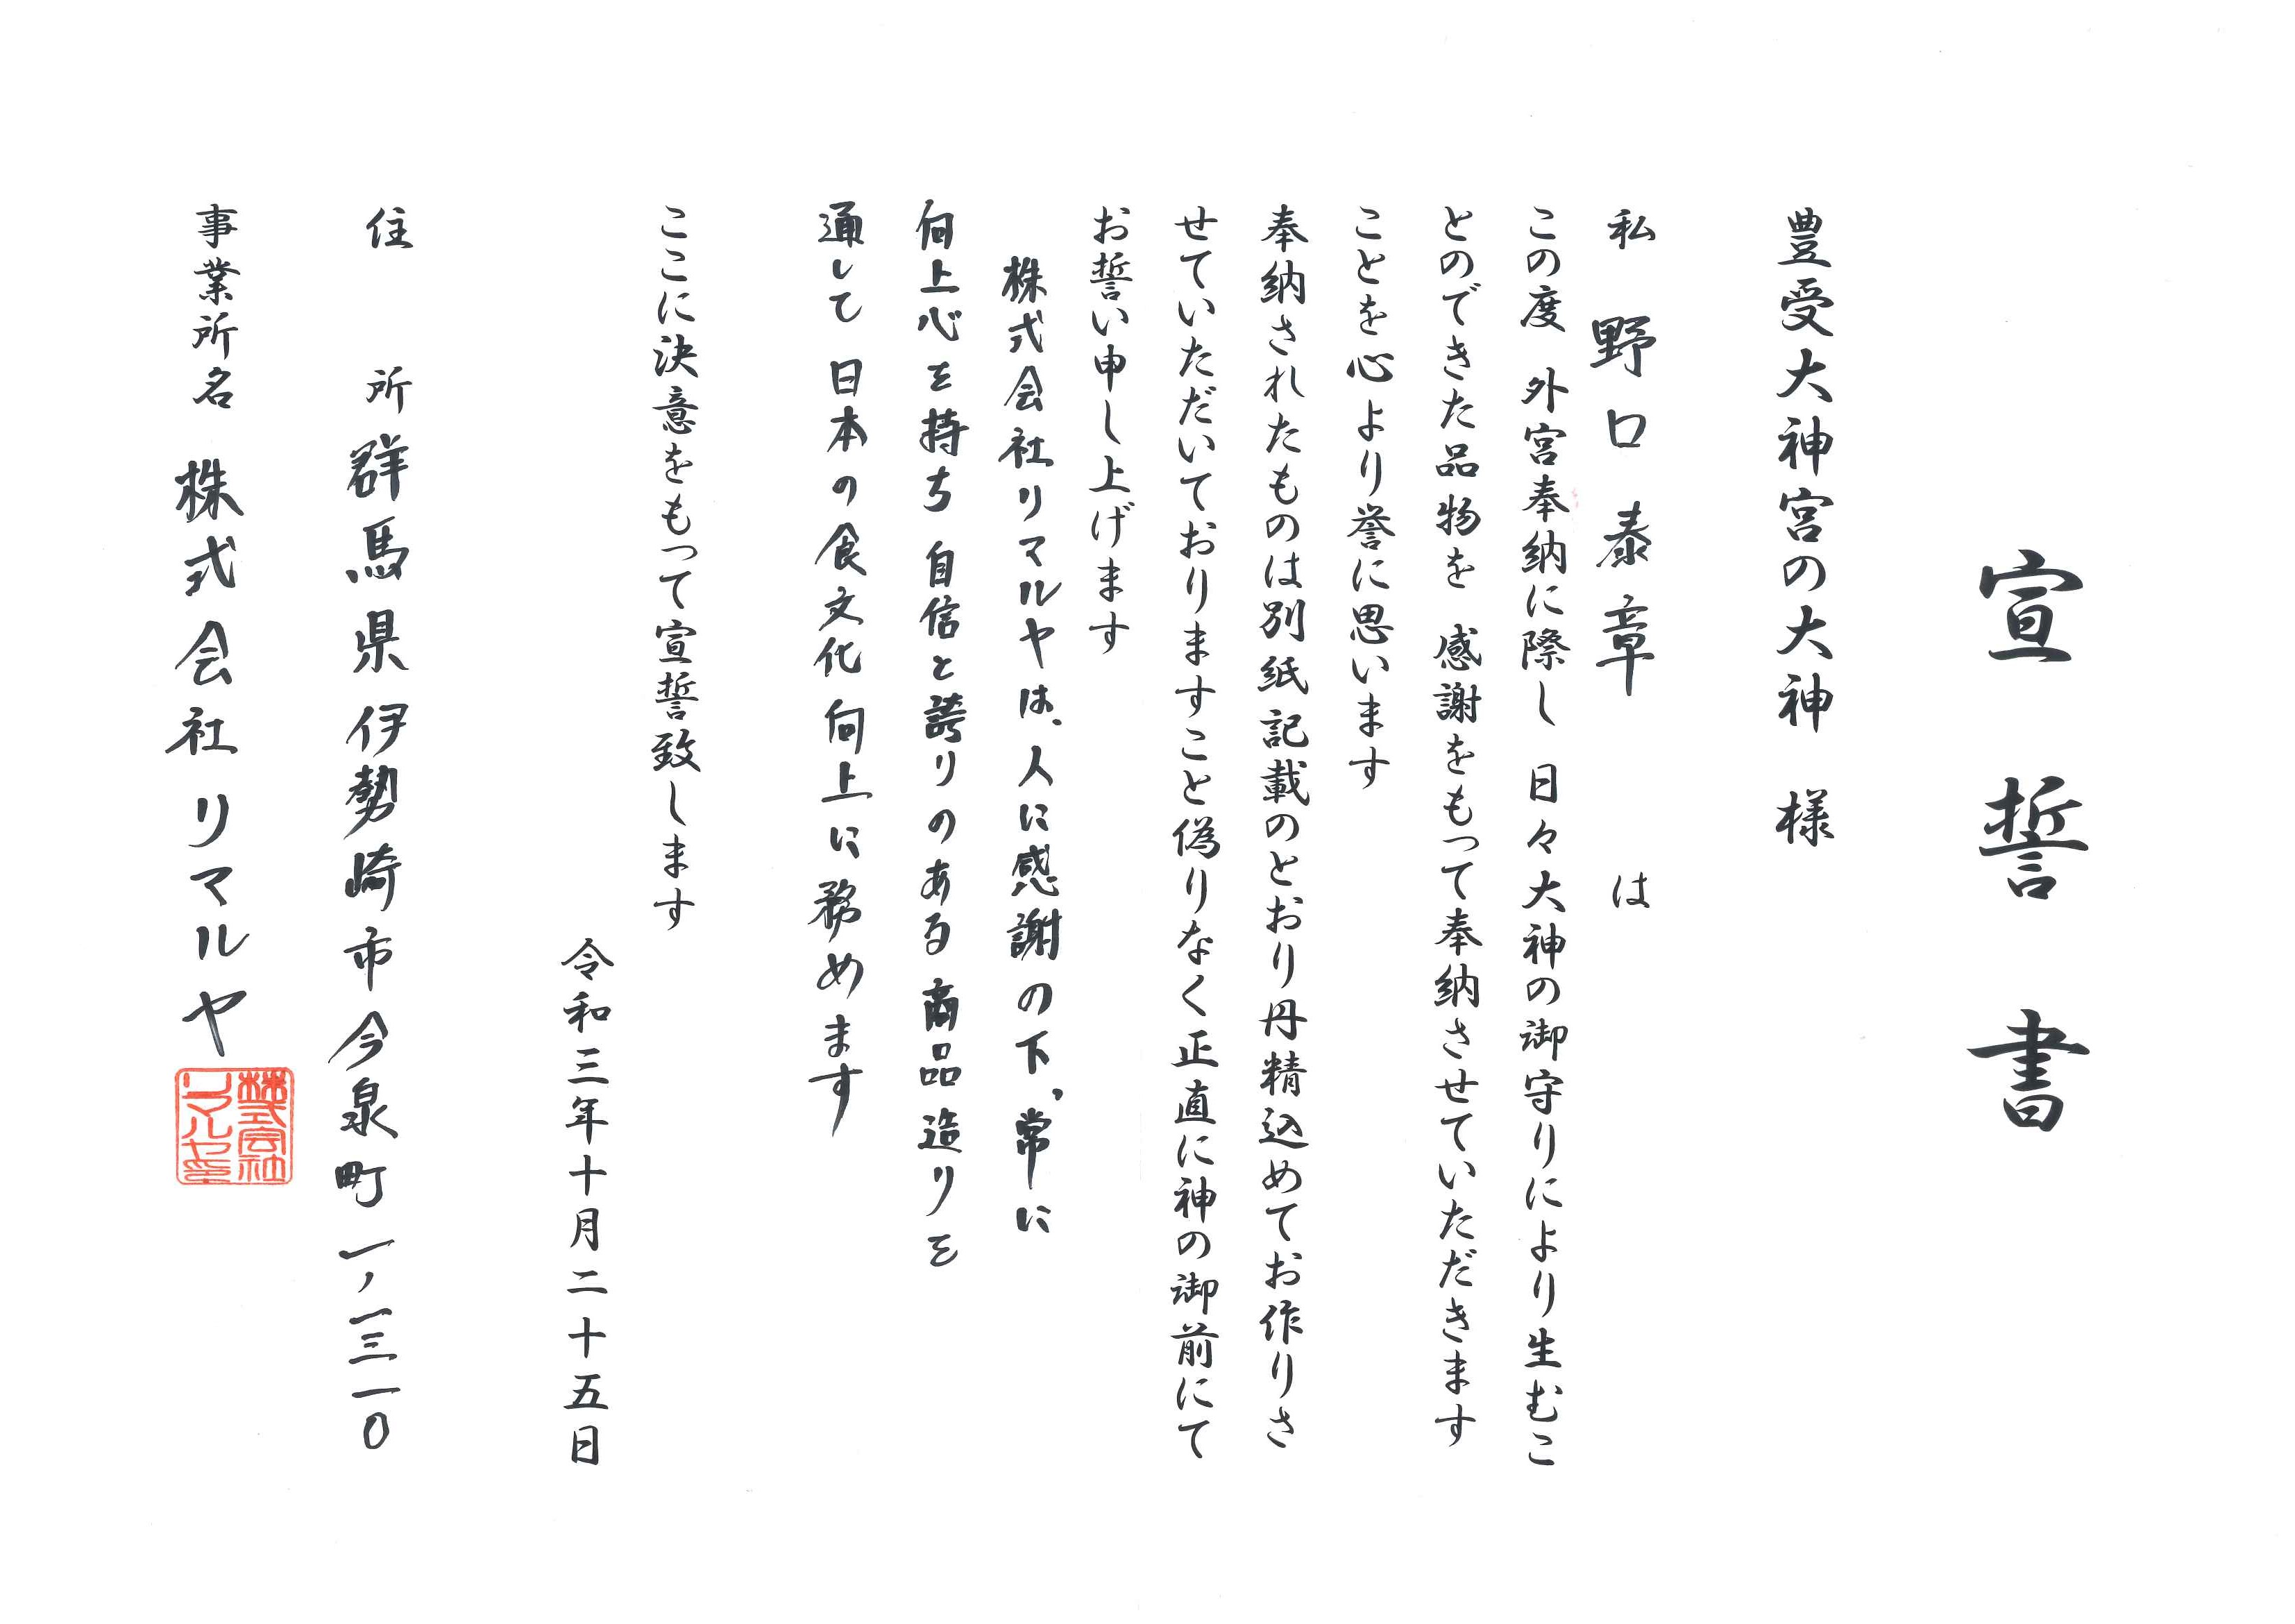 宣誓書
豊受大神宮の大神 様
私 野口 泰章 は
この度 外宮奉納に際し 日々大神の御守りにより生むこ
とのできた品物を 感謝をもって奉納させていただきます
ことを心より誉に思います
奉納されたものは別紙記載のとおり丹精込めてお作りさ
せていただいておりますこと偽りなく正直に神の御前にて
お誓い申し上げます
株式会社リマルヤは、人に感謝の下、常に
向上心を持ち 自信と誇りのある商品造りを
通して 日本の食文化向上に務めます
ここに決意をもって宣誓致します
令和三年十月二十五日
住 所 群馬県伊勢崎市今泉町一ノ一三一〇
事業所名 株式会社リマルヤ
株式会社
リマルヤ印